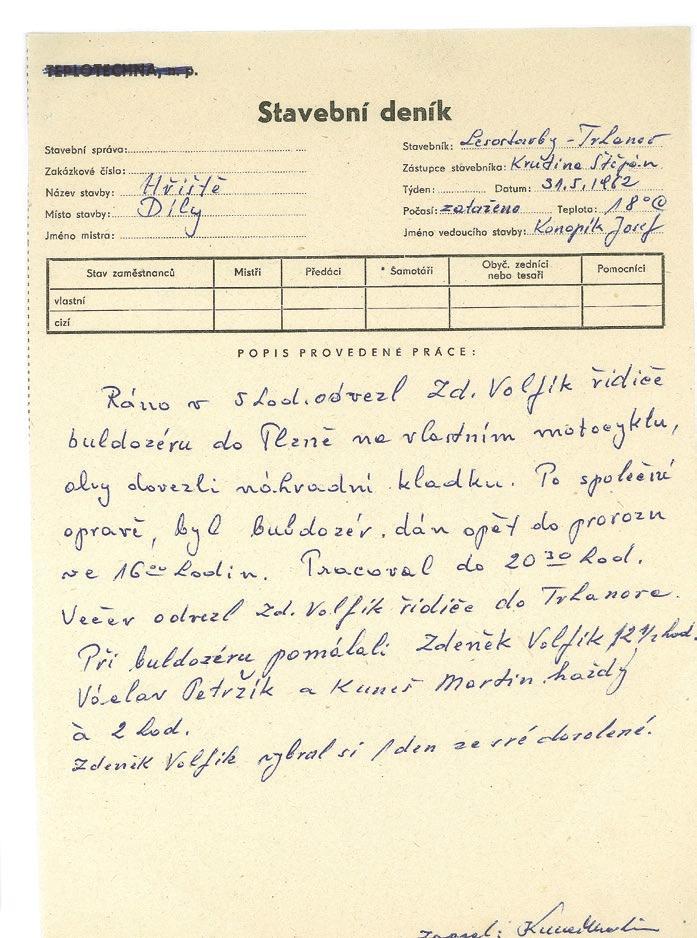 TEPLOTECHNA, n. p.
Stavební deník
Stavební správa:
Zakázkové číslo:
Název stavby: Hřiště
Místo stavby: Díly
Jméno mistra:
Stavebník: Lesostavby - Trhanov
Zástupce stavebníka: Krutina Štěpán
Týden: Datum: 31.5.1962
Počasí: zataženo Teplota: 18°C
Jméno vedoucího stavby: Konopík Josef
Stav zaměstnanců Mistři Předáci * Šamotáři Obyč. zedníci nebo tesaři Pomocníci
vlastní
cizí
POPIS PROVEDENÉ PRÁCE:
Ráno v 5 hod. odvezl Zd. Volfík řidiče
buldozéru do Plzně na vlastním motocyklu,
aby dovezli náhradní kladku. Po společné
opravě, byl buldozér dán opět do provozu
ve 16 00 hodin. Pracoval do 20 30 hod.
Večer odvezl Zd. Volfík řidiče do Trhanova.
Při buldozéru pomáhali Zdeněk Volfík 12 1/2 hod.
Václav Petržík a Kuneš Martin každý
à 2 hod.
Zdeněk Volfík vybral si 1 den ze své dovolené.
zapsal: Kuneš Martin